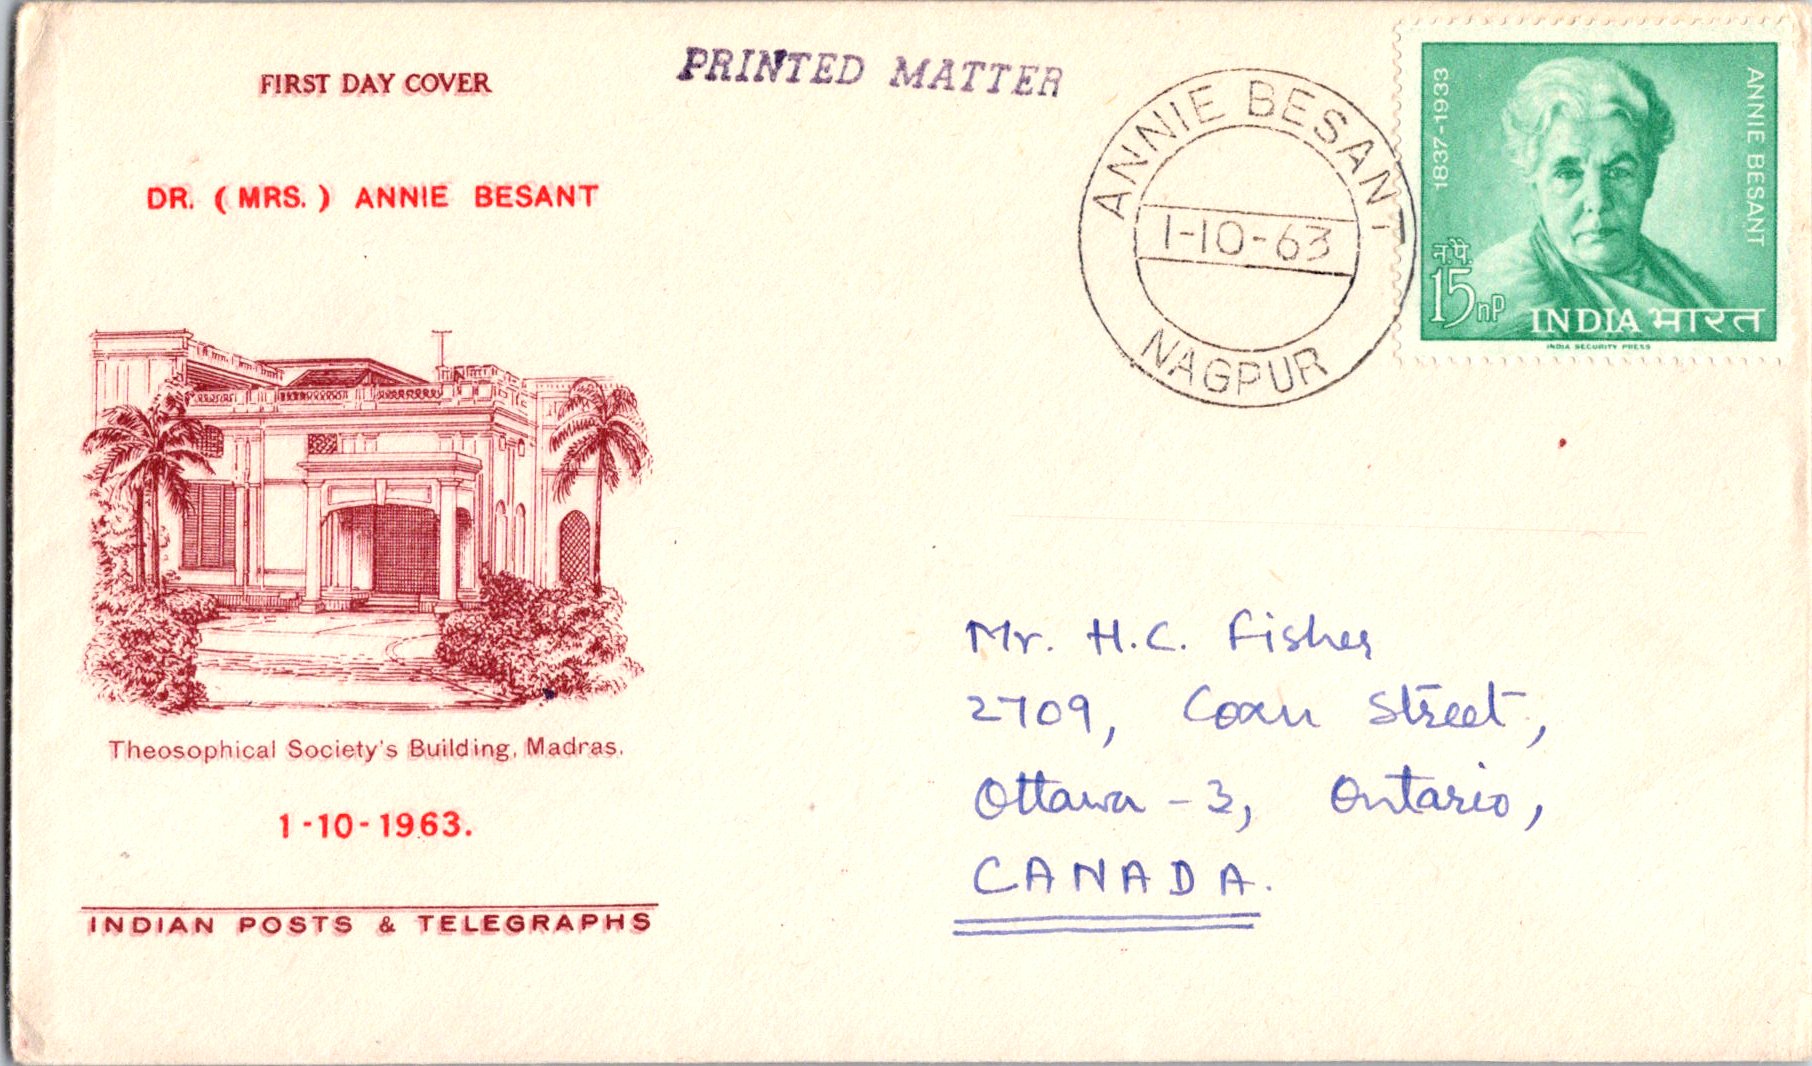 FIRST DAY COVER
PRINTED MATTER
DR. (MRS.) ANNIE BESANT
ANNIE BESANT
1-10-63
NAGPUR
1837-1933
ANNIE BESANT
न.पै.
15 nP
INDIA भारत
INDIA SECURITY PRESS
Theosophical Society's Building, Madras.
1-10-1963.
INDIAN POSTS & TELEGRAPHS
Mr. H.C. Fisher
2709, Street,
Ottawa - 3, Ontario,
CANADA.